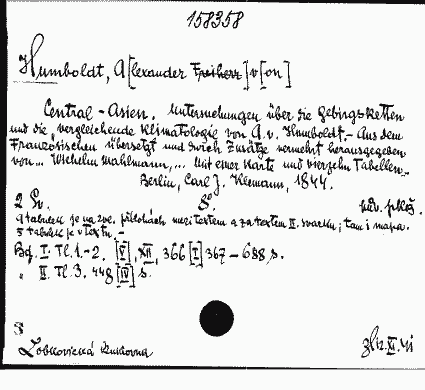 158358
Humboldt, A[lexander Freiherr] v[on]
Central-Asien. Untersuchungen über die Gebirgsketten
und die vergleichende Klimatologie von A. v. Humboldt. - Aus dem
Französischen übersetzt und durch Zusätze vermehrt herausgegeben
von... Wilhelm Mahlmann,... Mit einer Karte und vierzehn Tabellen..
Berlin, Carl J. Klemann, 1844.
2 Sv. 8°.
9 tabulek je na zvl. přílohách mezi textem a za textem II. svazku; tam i mapa.
5 tabulek je v textu. -
Bd. I. Tl. 1.-2. [V], XII, 366 [I] 367-688 s.
" II. Tl. 3. 448 [IV] s.
Lobkovická knihovna